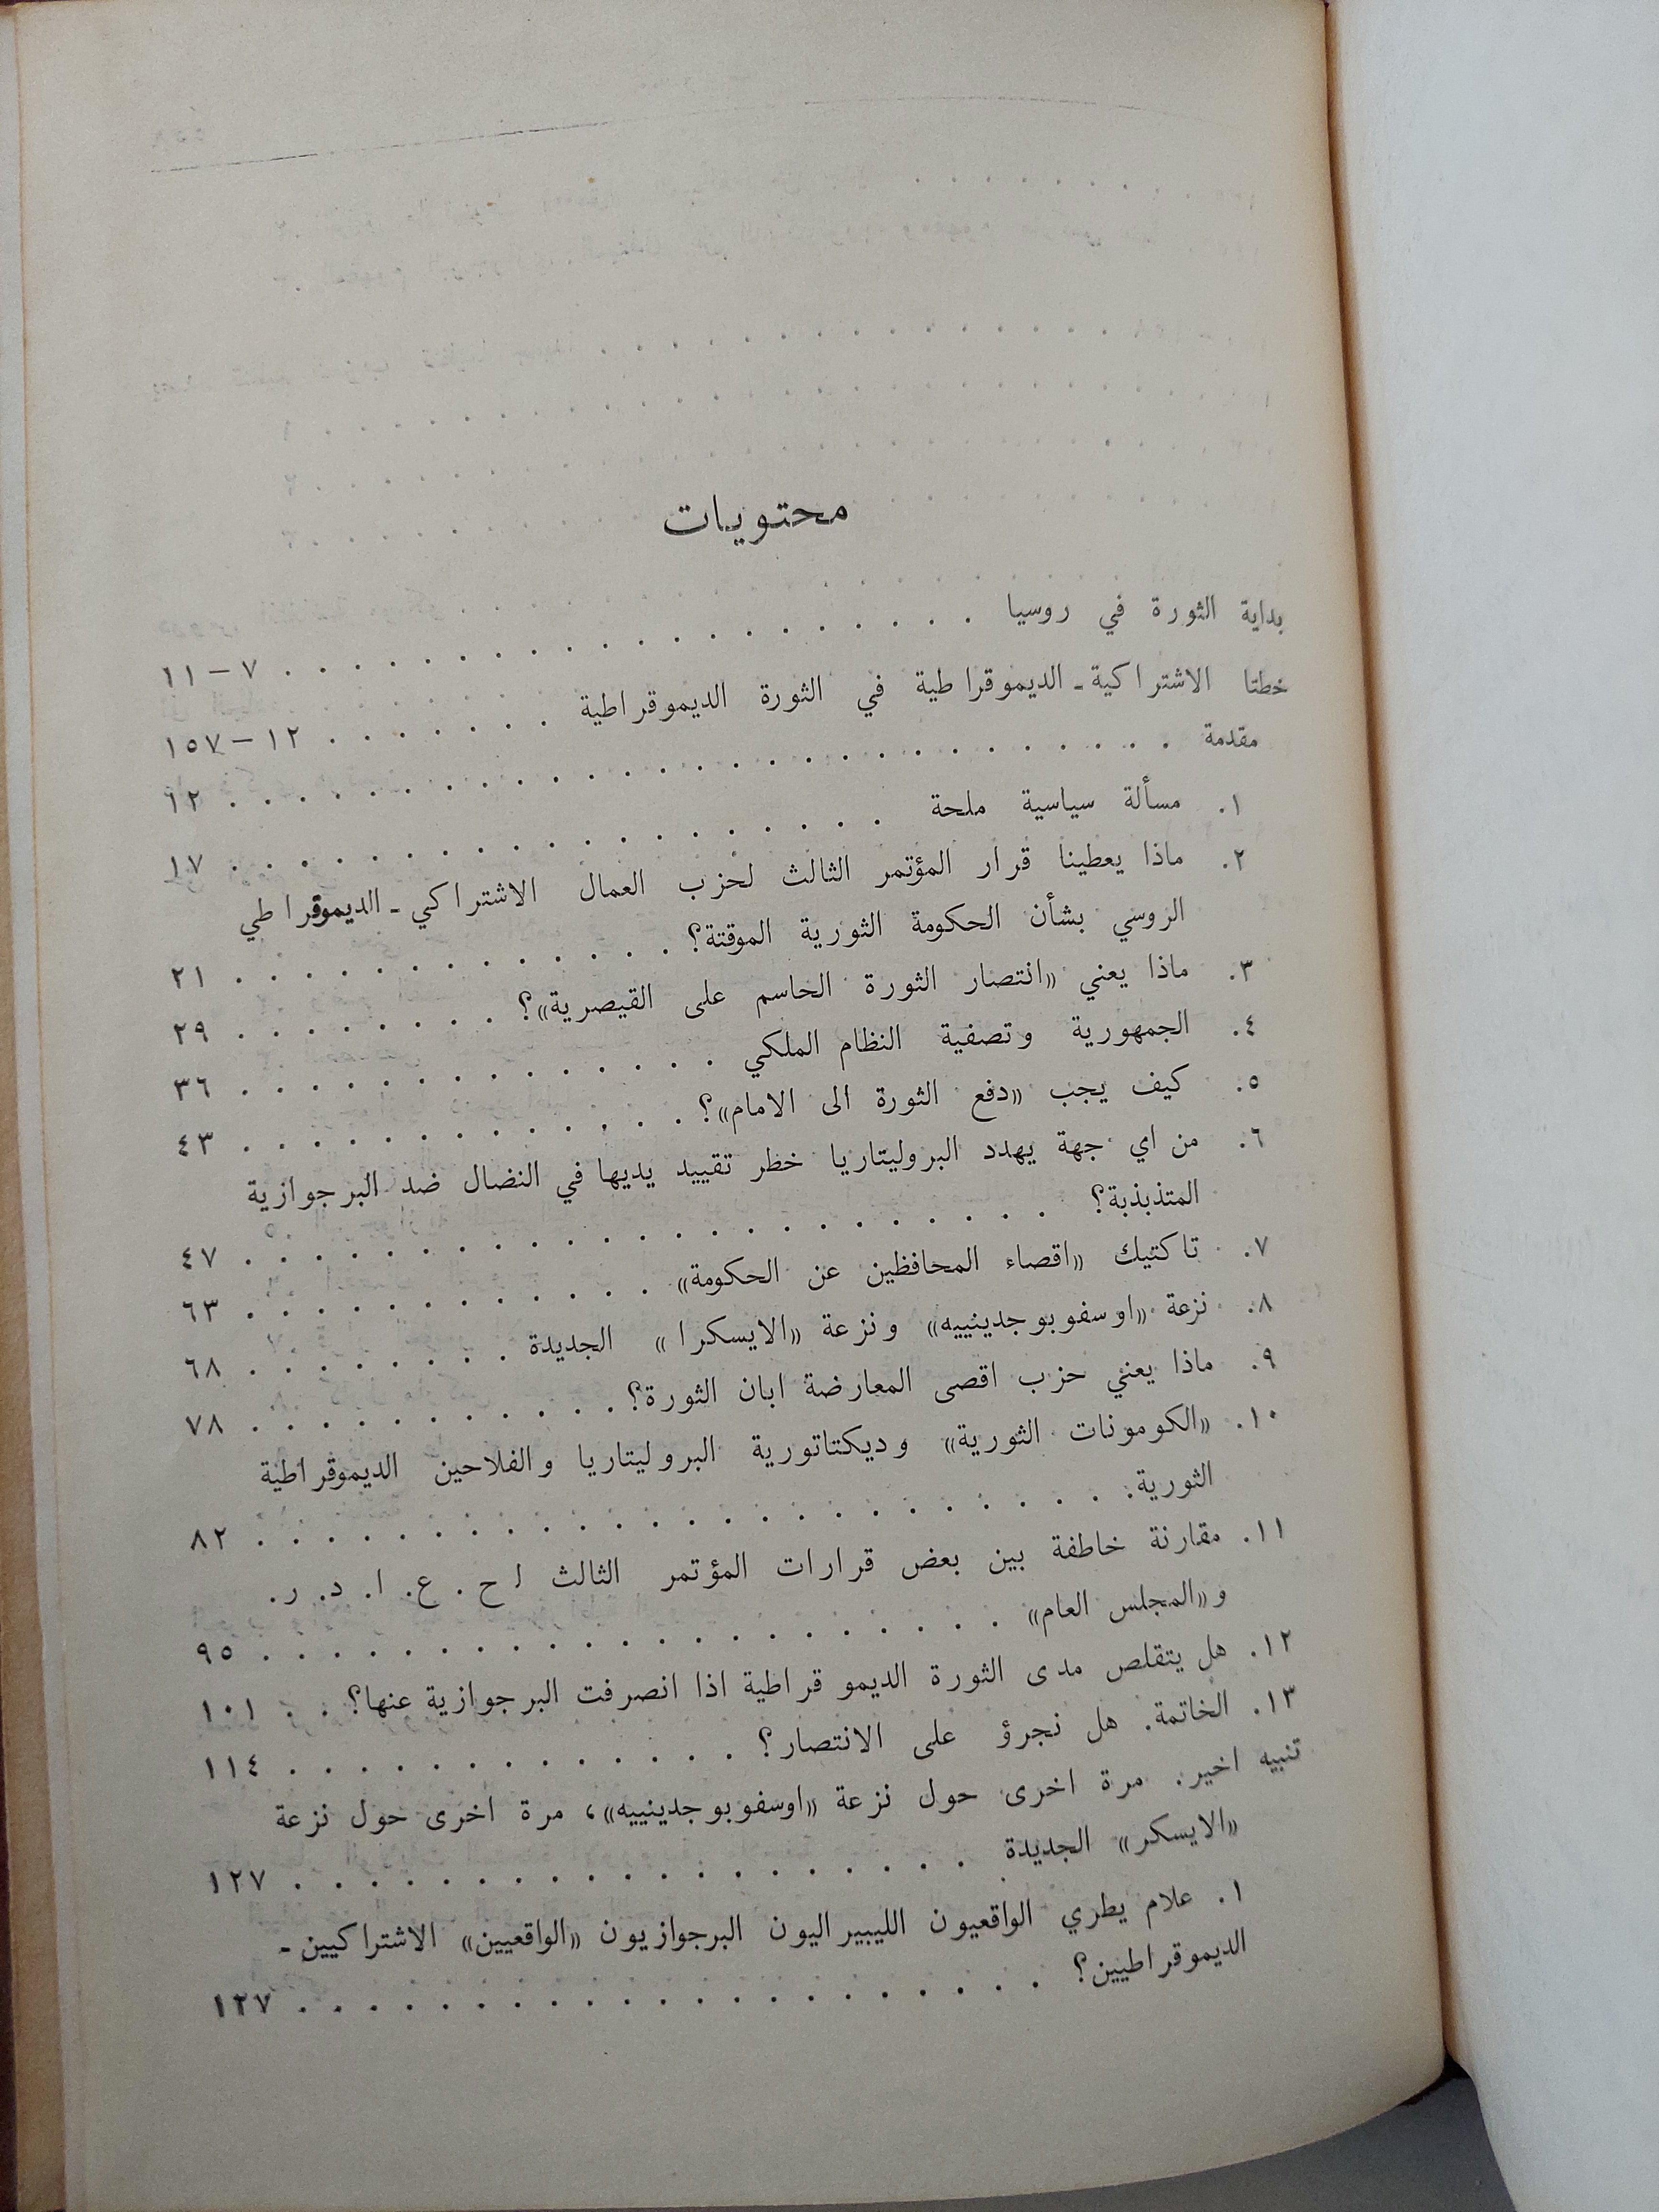 محتويات
بداية الثورة في روسيا . . . . . . . . . . . . . . . . . . . . ٧ – ١١
خطتا الاشتراكية ـ الديموقراطية في الثورة الديموقراطية . . . . . . . . . . . . ١٢ – ١٥٧
مقدمة . . . . . . . . . . . . . . . . . . . . . . . . . . ١٢
١. مسألة سياسية ملحة . . . . . . . . . . . . . . . . . . . ١٧
٢. ماذا يعطينا قرار المؤتمر الثالث لحزب العمال الاشتراكي ـ الديموقراطي
الروسي بشأن الحكومة الثورية الموقتة؟ . . . . . . . . . . . . . ٢١
٣. ماذا يعني «انتصار الثورة الحاسم على القيصرية»؟ . . . . . . . . ٢٩
٤. الجمهورية وتصفية النظام الملكي . . . . . . . . . . . . . . ٣٦
٥. كيف يجب «دفع الثورة الى الامام»؟ . . . . . . . . . . . . . ٤٣
٦. من اي جهة يهدد البروليتاريا خطر تقييد يديها في النضال ضد البرجوازية
المتذبذبة؟ . . . . . . . . . . . . . . . . . . . . . . . ٤٧
٧. تاكتيك «اقصاء المحافظين عن الحكومة» . . . . . . . . . . . . ٦٣
٨. نزعة «اوسفوبوجدينييه» ونزعة «الايسكرا» الجديدة . . . . . . . . ٦٨
٩. ماذا يعني حزب اقصى المعارضة ابان الثورة؟ . . . . . . . . . . . ٧٨
١٠. «الكومونات الثورية» وديكتاتورية البروليتاريا والفلاحين الديموقراطية
الثورية . . . . . . . . . . . . . . . . . . . . . . . . ٨٢
١١. مقارنة خاطفة بين بعض قرارات المؤتمر الثالث ل ح. ع. ا. د. ر.
و«المجلس العام» . . . . . . . . . . . . . . . . . . . . . ٩٥
١٢. هل يتقلص مدى الثورة الديموقراطية اذا انصرفت البرجوازية عنها؟ . . . ١٠١
١٣. الخاتمة. هل نجرؤ على الانتصار؟ . . . . . . . . . . . . . ١١٤
تنبيه اخير. مرة اخرى حول نزعة «اوسفوبوجدينييه»، مرة اخرى حول نزعة
«الايسكر» الجديدة . . . . . . . . . . . . . . . . . . . ١٢٧
١. علام يطري الواقعيون الليبيراليون البرجوازيون «الواقعيين» الاشتراكيين ـ
الديموقراطيين؟ . . . . . . . . . . . . . . . . . . . . . ١٢٧